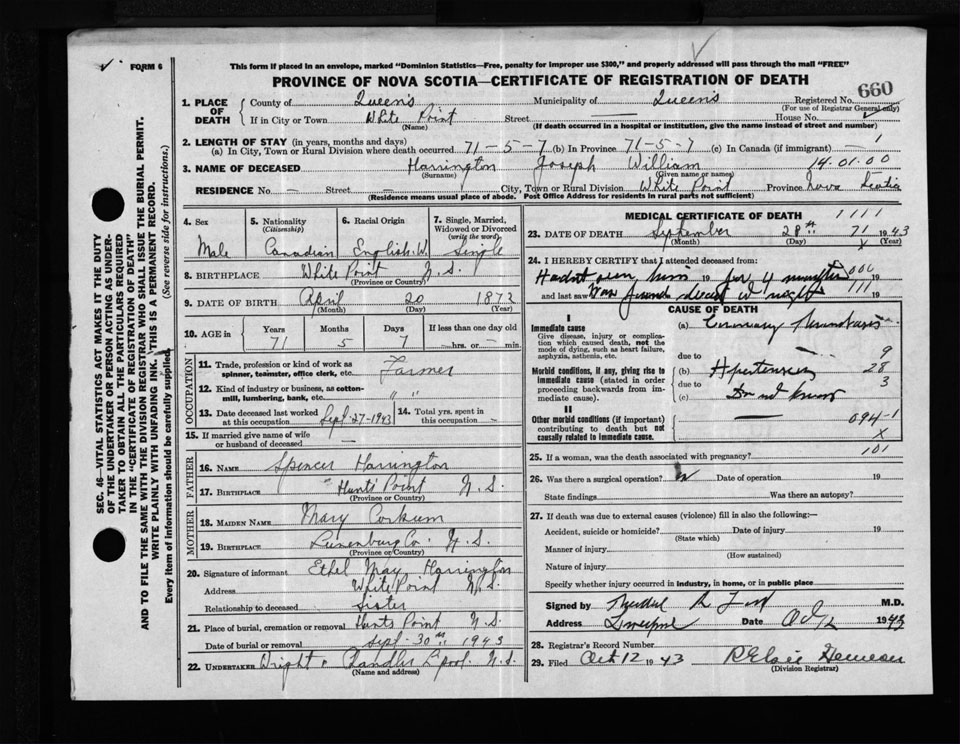 FORM 6
This form if placed in an envelope, marked "Dominion Statistics—Free, penalty for improper use $300," and properly addressed will pass through the mail "FREE"
PROVINCE OF NOVA SCOTIA—CERTIFICATE OF REGISTRATION OF DEATH
660
SEC. 46—VITAL STATISTICS ACT MAKES IT THE DUTY
OF THE UNDERTAKER OR PERSON ACTING AS UNDER-
TAKER TO OBTAIN ALL THE PARTICULARS REQUIRED
IN THE "CERTIFICATE OF REGISTRATION OF DEATH"
AND TO FILE THE SAME WITH THE DIVISION REGISTRAR WHO SHALL ISSUE THE BURIAL PERMIT.
WRITE PLAINLY WITH UNFADING INK. THIS IS A PERMANENT RECORD.
Every item of information should be carefully supplied. (See reverse side for instructions.)
1. PLACE OF DEATH
County of Queen's Municipality of Queen's Registered No.
(For use of Registrar General only)
If in City or Town White Point Street — House No.
(Name) (If death occurred in a hospital or institution, give the name instead of street and number)
2. LENGTH OF STAY (in years, months and days)
(a) In City, Town or Rural Division where death occurred. 71-5-7 (b) In Province 71-5-7 (c) In Canada (if immigrant) — 1
3. NAME OF DECEASED Harrington Joseph William 14.01.00
(Surname) (Given name or names)
RESIDENCE No. — Street — City, Town or Rural Division White Point Province Nova Scotia
(Residence means usual place of abode. Post Office Address for residents in rural parts not sufficient)
4. Sex Male
5. Nationality (Citizenship) Canadian
6. Racial Origin English. W.
7. Single, Married, Widowed or Divorced (write the word) Single
8. BIRTHPLACE White Point N.S.
(Province or Country)
9. DATE OF BIRTH April 20 1872
(Month) (Day) (Year)
10. AGE in Years 71 Months 5 Days 7 If less than one day old — hrs. or — min.
OCCUPATION
11. Trade, profession or kind of work as spinner, teamster, office clerk, etc. Farmer
12. Kind of industry or business, as cotton-mill, lumbering, bank, etc. " "
13. Date deceased last worked at this occupation Sept-27-1943
14. Total yrs. spent in this occupation —
15. If married give name of wife or husband of deceased —
FATHER
16. NAME Spencer Harrington
17. BIRTHPLACE Hunts Point N.S.
(Province or Country)
MOTHER
18. MAIDEN NAME Mary Corkum
19. BIRTHPLACE Lunenburg Co. N.S.
(Province or Country)
20. Signature of informant Ethel May Harrington
Address White Point N.S.
Relationship to deceased Sister
21. Place of burial, cremation or removal Hunts Point N.S.
Date of burial or removal Sept-30th 1943
22. UNDERTAKER Wright & Chandler Lpool. N.S.
(Name and address)
MEDICAL CERTIFICATE OF DEATH 1111
23. DATE OF DEATH September 28th 71 1943
(Month) (Day) X (Year)
24. I HEREBY CERTIFY that I attended deceased from:
Had not seen him 19 for 4 months 000
and last saw Was found dead at night 111 19
CAUSE OF DEATH
I
Immediate cause
Give disease, injury or complication which caused death, not the mode of dying, such as heart failure, asphyxia, asthenia, etc.
(a) Coronary Thrombosis
due to 9
Morbid conditions, if any, giving rise to immediate cause (stated in order proceeding backwards from immediate cause).
(b) Hypertension 28
due to 3
(c) Do not know
II
Other morbid conditions (if important) contributing to death but not causally related to immediate cause.
— 094-1
X
25. If a woman, was the death associated with pregnancy? 101
26. Was there a surgical operation? Date of operation 19
State findings Was there an autopsy?
27. If death was due to external causes (violence) fill in also the following:—
Accident, suicide or homicide? Date of injury 19
(State which)
Manner of injury
(How sustained)
Nature of injury
Specify whether injury occurred in industry, in home, or in public place
Signed by M.D.
Address Liverpool Date Oct 12 1943
28. Registrar's Record Number
29. Filed Oct 12 1943
(Division Registrar)